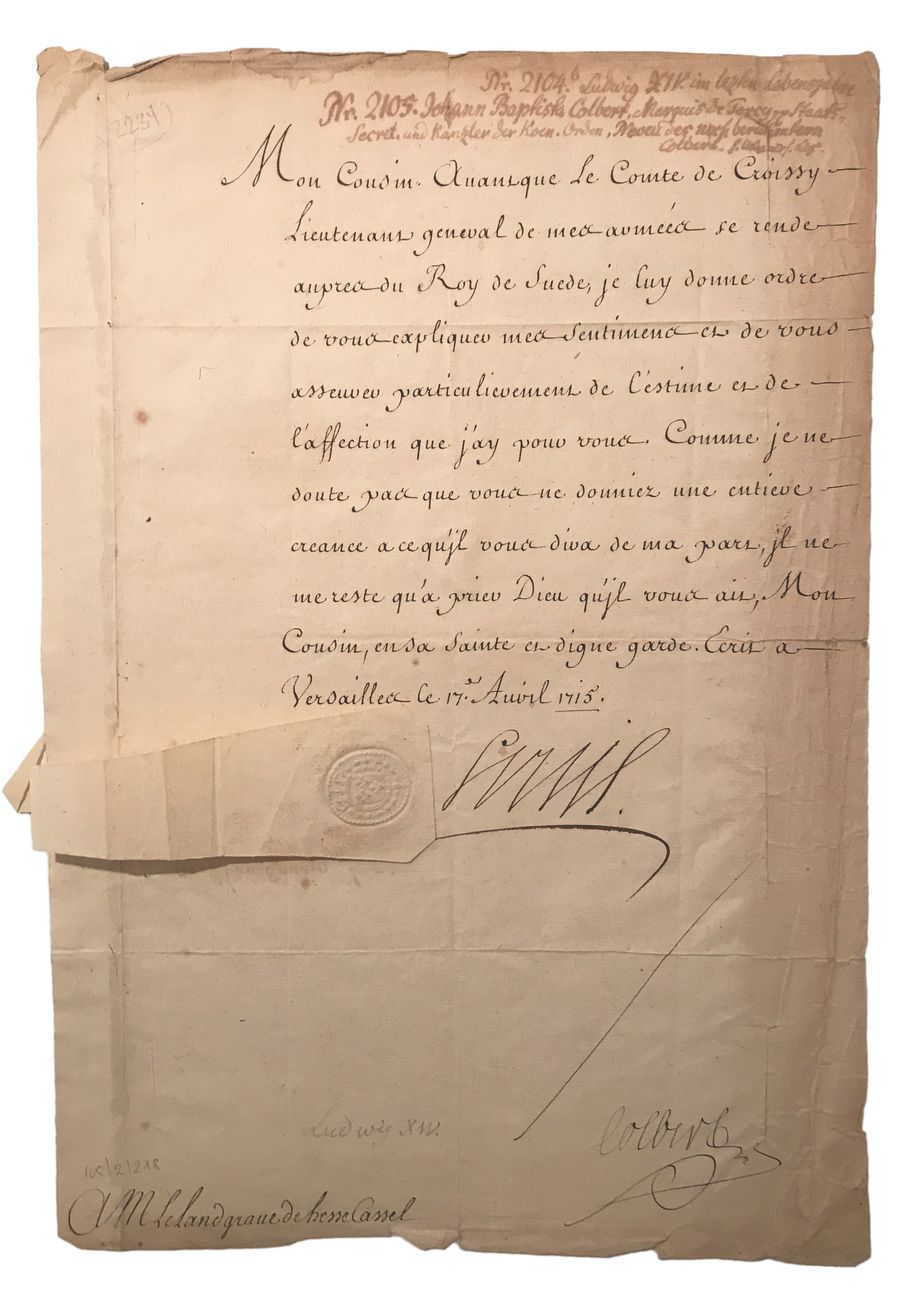 2234
Nr. 2104.b Ludwig XIV. im letzten Lebensjahre
Nr. 2105. Johann Baptista Colbert, Marquis de Torcy, Staats-
Secret. und Kanzler der Koen. Orden, Neveu des
Colbert.
Mon Cousin. Auantque Le Comte de Croissy
Lieutenant general de mes armées se rende
aupres du Roy de Suede, je luy donne ordre
de vous expliquer mes sentimens et de vous
asseurer particulierement de l'éstime et de
l'affection que j'ay pour vous. Comme je ne
doute pas que vous ne donniez une entiere
creance a cequ'jl vous dira de ma part, jl ne
me reste qu'a prier Dieu qu'jl vous ait, Mon
Cousin, en sa Sainte et digne garde. Ecrit a
Versailles le 17.e Auril 1715.
Louis
Ludwig XIV.
Colbert
45/2/218
A M Le Landgraue de hesse Cassel